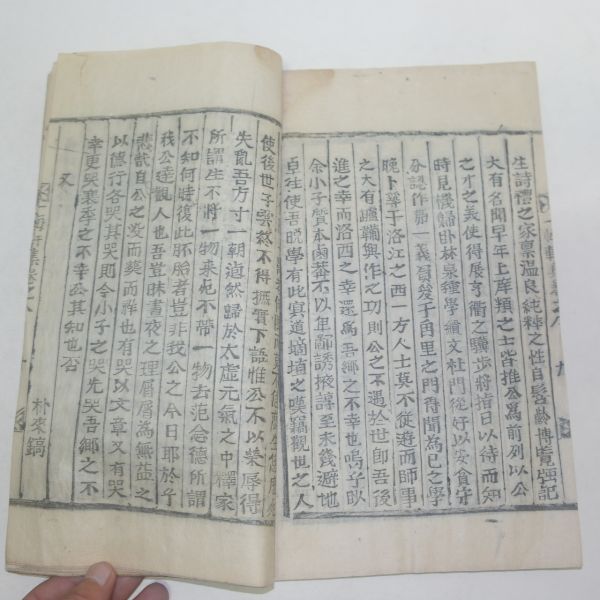 生詩禮之家禀溫良純粹之性自髫齡博覽强記
大有名聞早年上庠類之士皆推公爲前列以公
之才之義使得展亨衢之驥步將指日以待而知
時見機歸卧林泉種學績文杜門從好以安貧守
分認作第一義員笈千
里之門得聞爲己之學
晩卜築于洛江之西一方人士莫不従遊而師事
之大有
輔興作之功則公之不遇於世卽吾後
進之幸而洛西之幸還爲吾鄕之不幸也嗚乎以
余小子質本鹵莽不以年鄙誘掖諄至未幾避地
卓往使吾晩學有此冥道擿埴之嘆竊觀世之人
使後世子雲終不得摭實下語惟公不以榮辱得
失亂吾方寸一朝逌然歸於太虛元氣之中釋家
所謂生不將一物来死不帶一物去范忿德所謂
不知何時復此胚胎者豈非我公之今日耶於乎
我公達觀人也吾豈昧晝夜之理屑屑爲無益之
悲哉自公之歿而葬而祥也有哭以文章又有哭
以德行各哭其哭則今小子之哭先哭吾鄕之不
幸更哭末學之不幸公其知也否
又
朴來鎬